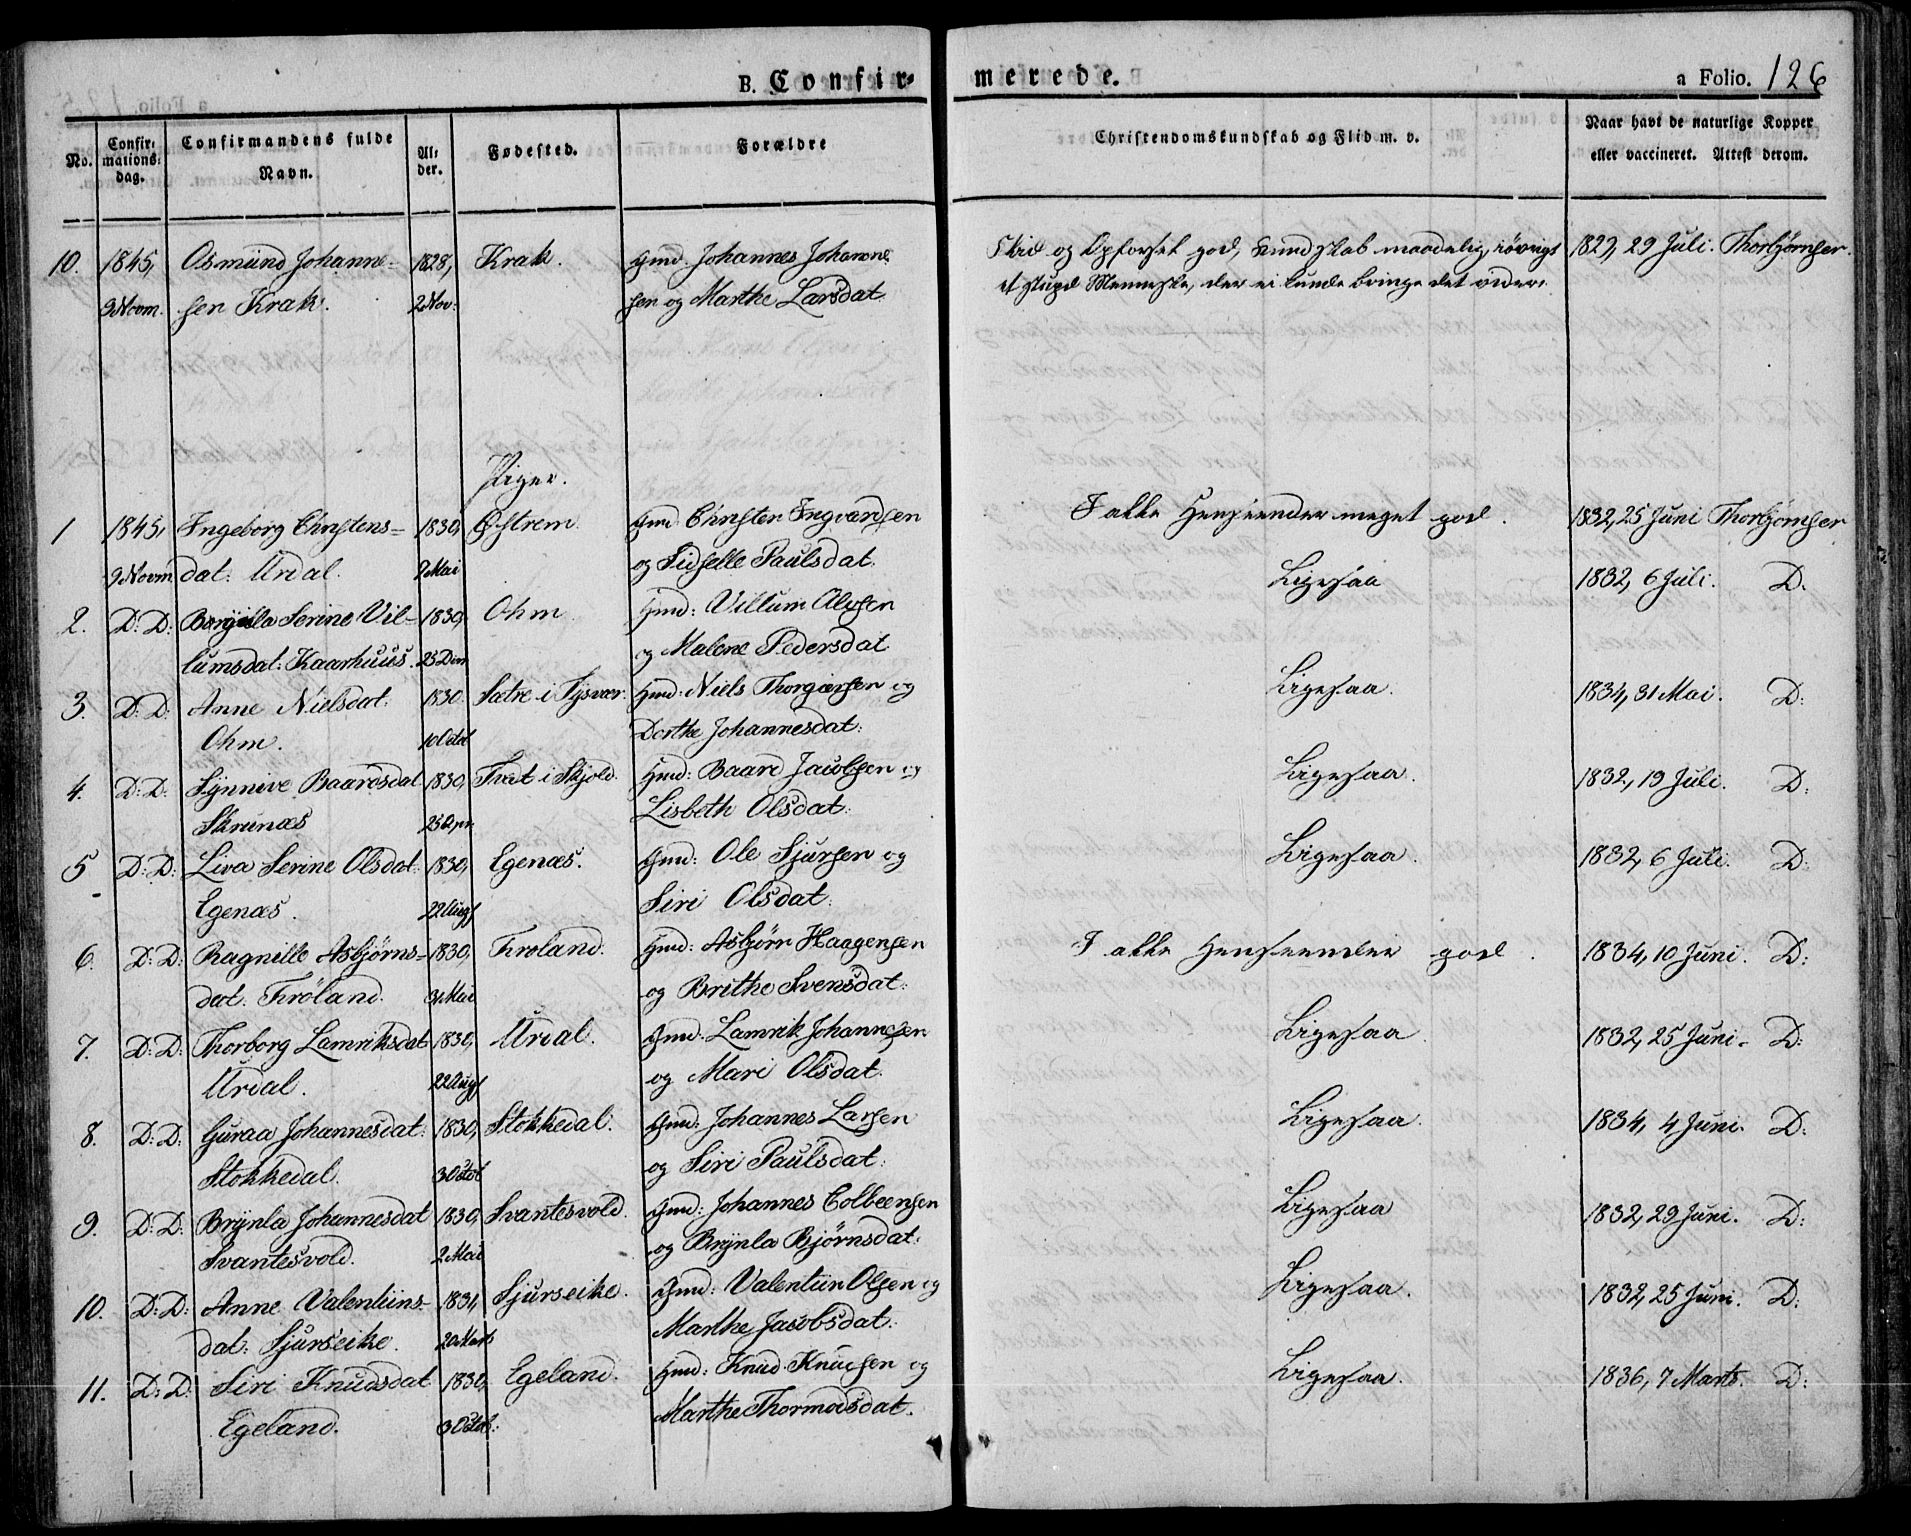 B. Confir-
merede.
a Folio. 126
No.
Confir-
mations-
dag.
Confirmandens fulde
Navn.
Al-
der.
Fødested.
Forældre
Christendomskundskab og Flid m. v.
Naar havt de naturlige Kopper
eller vaccineret. Attest derom.
10. 1845, Osmund Johanne- 1828, Krak. Gmd. Johannes Johanne Flid og Opførsel god, Kundskab maadelig, iøvrigt 1829, 29 Juli. Thorbjørnsen.
9 Novm. sen Krak. 2 Nov: sen og Marthe Larsdat. et stupid Menneske, der ei kunde bringe det videre
Piger.
1 1845, Ingeborg Christens- 1830, Østrem Gmd. Christen Ingvarsen I alle Henseender meget god. 1832, 25 Juni Thorbjørnsen
9 Novm dat: Urdal. 9 Mai og Sidselle Paulsdat.
2. D: D: Serine Vil- 1830, Ohm Gmd: Villum Olysen Ligesaa 1832, 6 Juli. D.
lumsdat: Kaarhuus. og Malene Pedersdat
3. D: D: Anne Nielsdat. 1830. Sætre i Tysvær. Gmd: Niels Thorgiersen og Ligesaa. 1834, 31 Mai. D:
Ohm. Dorthe Johannesdat:
4. D: D: Synneve Baardsdat 1830, Tvet i Skjold. Gmd: Baard Jacobsen og Ligesaa. 1832, 19 Juli. D:
Skrunæs Lisbeth Olsdat:
5 D: D: Liva Serine Olsdat: 1830, Egenæs. Gmd: Ole Sjursen og Ligesaa. 1832, 6 Juli. D:
Egenæs. 22 Augs Siri Olsdat:
6. D: D: Ragnille Asbjørns- 1830, Frøland. Gmd: Asbjørn Haagensen I alle Henseender god. 1834, 10 Juni. D:
dat: Frøland. 31 Mai og Brithe Svensdat:
7. D: D: Thorborg Lamriksdat 1830, Urdal. Gmd: Lamrik Johannesen Ligesaa. 1832, 25 Juni. D:
Urdal. 22 Augs og Mari Olsdat.
8. D: D: Guraa Johannesdat: 1830, Stokkedal. Gmd: Johannes Larsen Ligesaa. 1834, 4 Juni. D:
Stokkedal. og Siri Paulsdat:
9. D: D: Brynla Johannesdat 1830, Svantesvold. Gmd: Johannes Colbeensen Ligesaa 1832, 29 Juni. D:
Svantesvold. 2 Mai og Brynla Bjørnsdat.
10. D: D: Anne Valentiins- 1831, Sjurseike. Gmd: Valentiin Olsen og Ligesaa. 1832, 25 Juni. D:
dat: Sjurseike. 20 Marts Marthe Jacobsdat:
11. D: D: Siri Knudsdat 1830, Egeland. Gmd: Knud Knudsen og Ligesaa. 1836, 7 Marts. D:
Egeland. Marthe Thormodsdat.